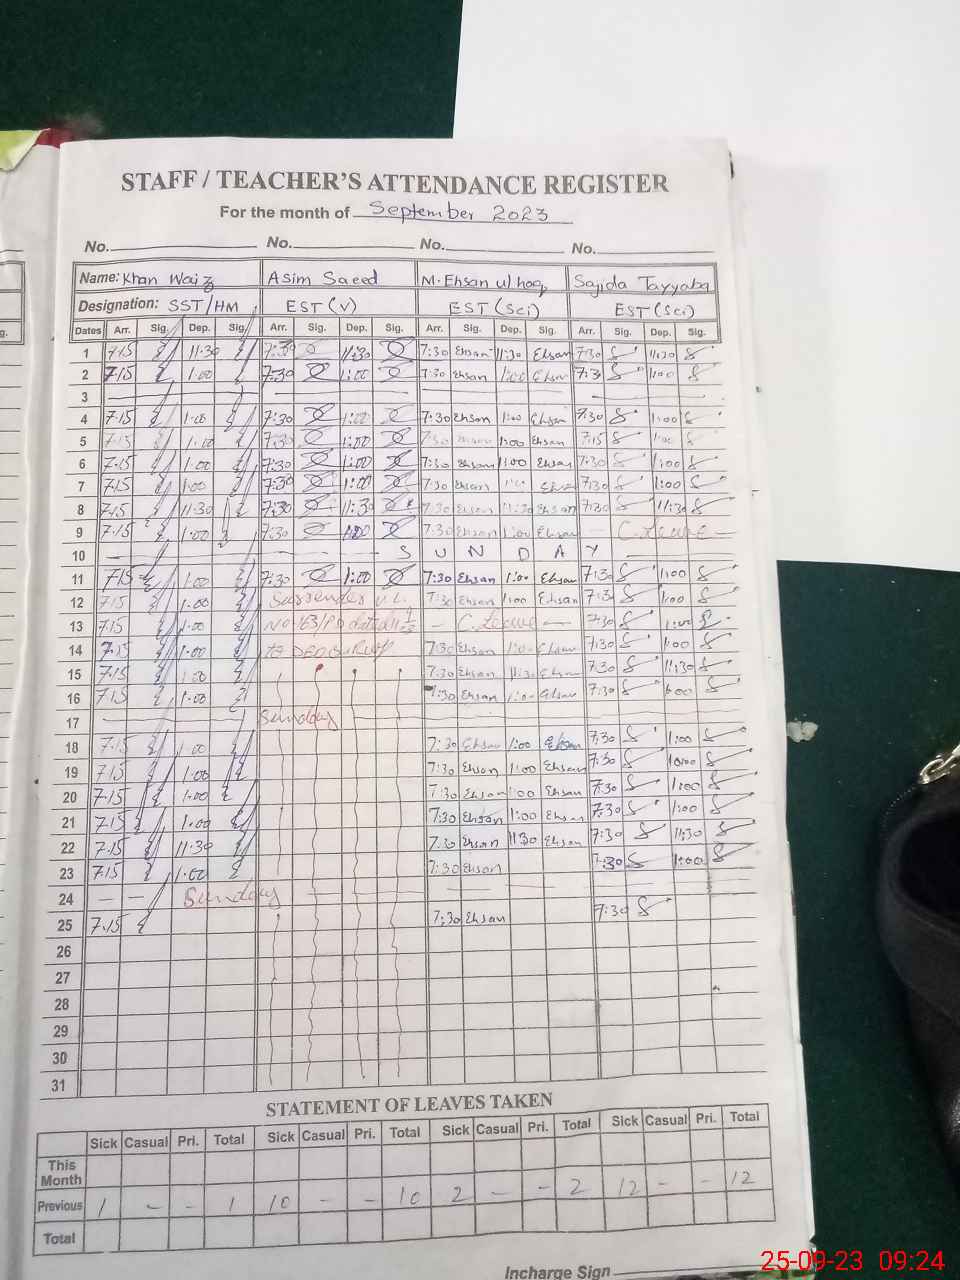 STAFF / TEACHER'S ATTENDANCE REGISTER
For the month of September 2023
No. No. No. No.
Name: Khan Waiz Asim Saeed M. Ehsan ul haq Sajida Tayyaba
Designation: SST/HM EST (V) EST (Sci) EST (Sci)
Dates Arr. Sig. Dep. Sig. Arr. Sig. Dep. Sig. Arr. Sig. Dep. Sig. Arr. Sig. Dep. Sig.
1 7.15 11.30 7:30 11:30 7:30 Ehsan 11:30 Ehsan 7:30 11:30
2 7.15 1.00 7:30 1:00 7:30 Ehsan 1:00 Ehsan 7:3 1:00
3
4 7.15 1.00 7:30 1:00 7:30 Ehsan 1:00 Ehsan 7:30 1:00
5 7.15 1.00 7:30 1:00 7:30 1:00 Ehsan 7:15 1:00
6 7.15 1.00 7:30 1:00 7:30 Ehsan 1:00 Ehsan 7:30 1:00
7 7.15 1.00 7:30 1:00 7:30 Ehsan 7:30 1:00
8 7.15 11.30 7:30 11:30 7:30 Ehsan 11:30 Ehsan 7:30 11:30
9 7.15 1.00 7:30 1:00 7:30 Ehsan 1:00 Ehsan — C. Leave —
10 — S U N D A Y
11 7.15 1.00 7:30 1:00 7:30 Ehsan 1:00 Ehsan 7:30 1:00
12 7.15 1.00 7:30 Ehsan 1:00 Ehsan 7:30 1:00
13 7.15 1.00 — C. Leave — 7:30 1:00
14 7.15 1.00 7:30 Ehsan 1:00 Ehsan 7:30 1:00
15 7.15 1.00 7:30 Ehsan 11:30 Ehsan 7:30 11:30
16 7.15 1.00 7:30 Ehsan 1:00 Ehsan 7:30 1:00
17 Sunday
18 7.15 1.00 7:30 Ehsan 1:00 Ehsan 7:30 1:00
19 7.15 1.00 7:30 Ehsan 1:00 Ehsan 7:30 1:00
20 7.15 1.00 7:30 Ehsan 1:00 Ehsan 7:30 1:00
21 7.15 1.00 7:30 Ehsan 1:00 Ehsan 7:30 1:00
22 7.15 11.30 7:30 Ehsan 11:30 Ehsan 7:30 11:30
23 7.15 1.00 7:30 Ehsan 7:30 1:00
24 — — Sunday
25 7.15 7:30 Ehsan 7:30
26
27
28
29
30
31
STATEMENT OF LEAVES TAKEN
Sick Casual Pri. Total Sick Casual Pri. Total Sick Casual Pri. Total Sick Casual Pri. Total
This Month
Previous 1 - - 1 10 - - 10 2 - - 2 12 - - 12
Total
Incharge Sign
25-09-23 09:24